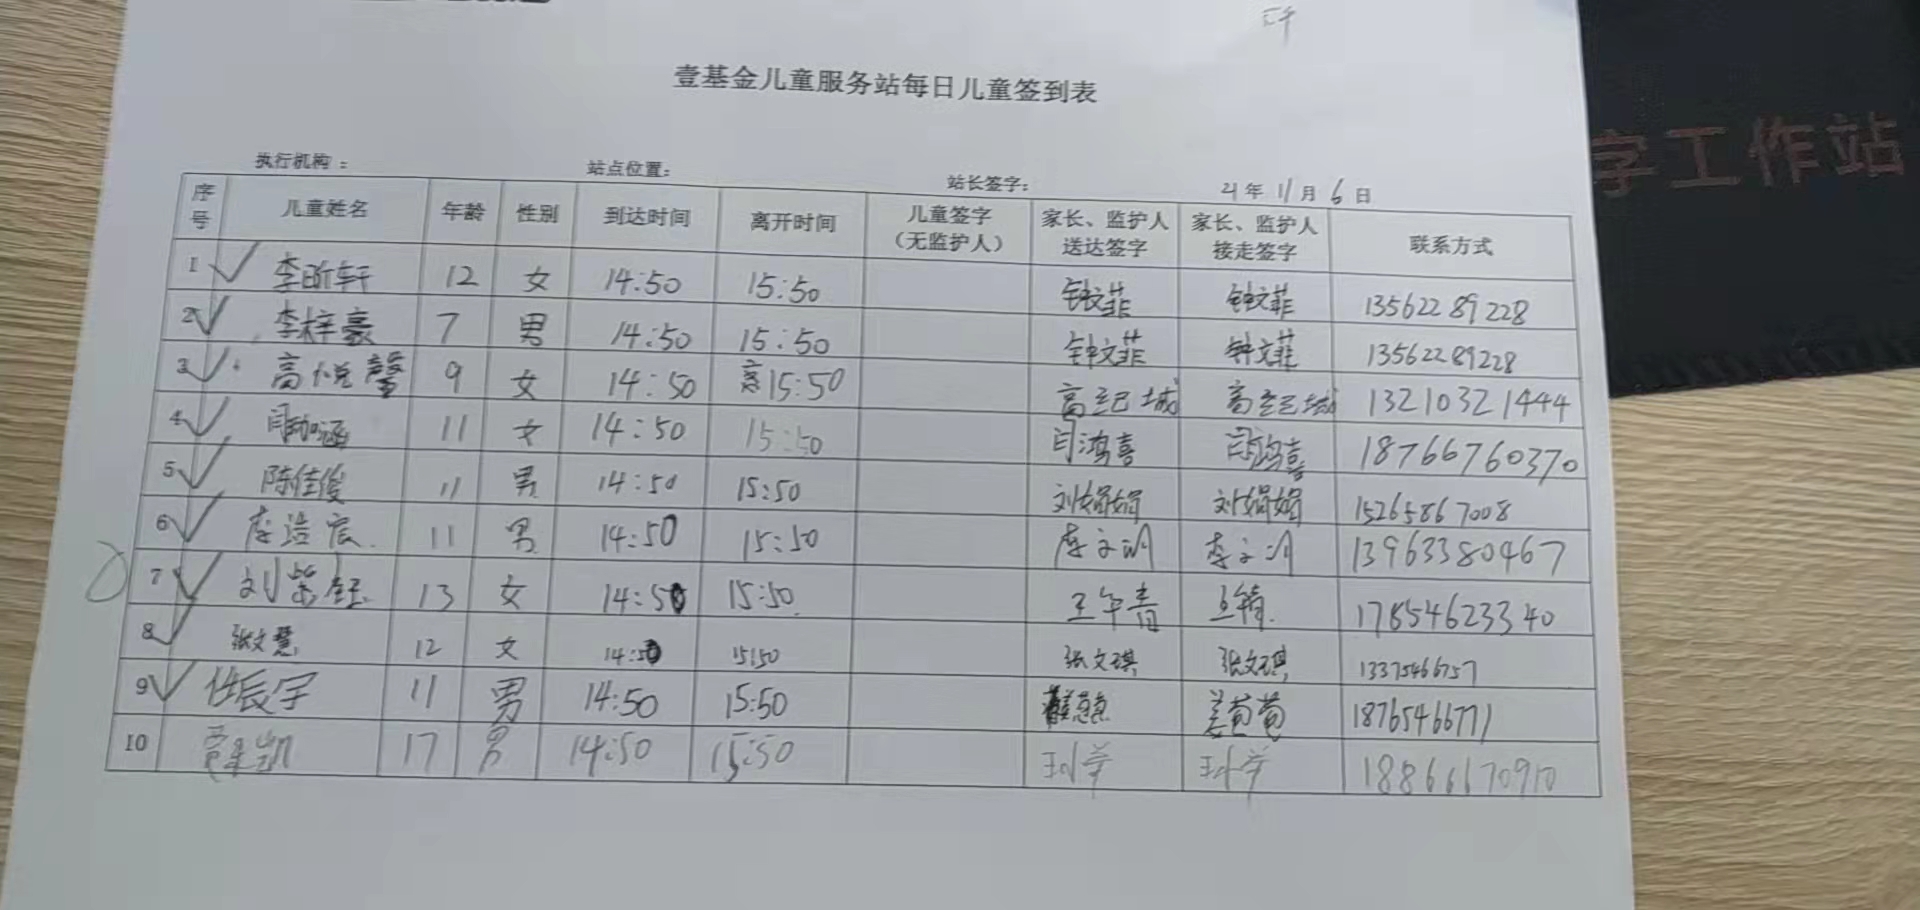 壹基金儿童服务站每日儿童签到表
字工作站
执行机构： 站点位置： 站长签字： 21年11月6日
序号 儿童姓名 年龄 性别 到达时间 离开时间 儿童签字（无监护人） 家长、监护人送达签字 家长、监护人接走签字 联系方式
1 李昕轩 12 女 14:50 15:50 钟文菲 钟文菲 13562289228
2 李梓豪 7 男 14:50 15:50 钟文菲 钟文菲 13562289228
3 高悦馨 9 女 14:50 15:50 高纪城 高纪城 13210321444
4 闫 涵 11 女 14:50 15:50 闫鸿喜 闫鸿喜 18766760370
5 陈佳俊 11 男 14:50 15:50 刘娟娟 刘娟娟 15265867008
6 李浩宸 11 男 14:50 15:50 李文明 李文明 13963380467
7 刘紫钰 13 女 14:50 15:50 王 青 17854623340
8 张文慧 12 女 14:50 15:50 张文琪 张文琪 13375466757
9 任辰宇 11 男 14:50 15:50 18765466771
10 凯 17 男 14:50 15:50 18866670910